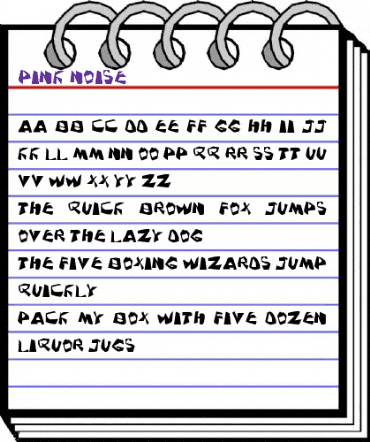 PINK NOISE
AA BB CC DD EE FF GG HH II JJ
KK LL MM NN OO PP QQ RR SS TT UU
VV WW XX YY ZZ
THE QUICK BROWN FOX JUMPS
OVER THE LAZY DOG
THE FIVE BOXING WIZARDS JUMP
QUICKLY
PACK MY BOX WITH FIVE DOZEN
LIQUOR JUGS